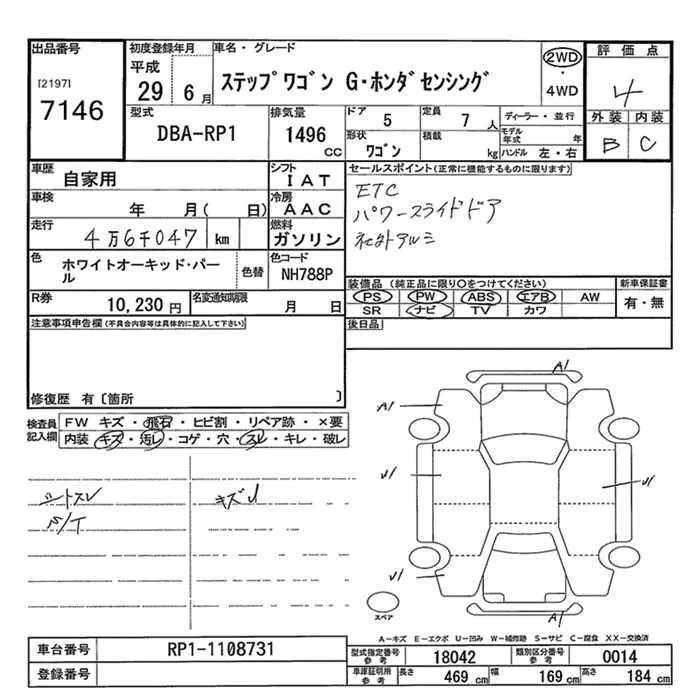 出品番号
[2197]
7146
初度登録年月
平成
29 6月
車名・グレード
ステップワゴン G・ホンダセンシング
2WD
・
4WD
評価点
4
外装 内装
B C
型式
DBA-RP1
排気量
1496
CC
ドア
5
定員
7
人
形状
ワゴン
積載
kg
ディーラー・並行
モデル年式 年
ハンドル 左・右
車歴
自家用
シフト
IAT
車検
年 月( 日)
冷房
AAC
走行
4万6千047 km
燃料
ガソリン
色
ホワイトオーキッド・パール
色替
色コード
NH788P
R券
10,230 円
名変通知期限
月 日
セールスポイント(正常に機能するものに限ります)
ETC
パワースライドドア
社外アルミ
装備品 (純正品に限り○をつけてください)
新車保証書
PS PW ABS エアB AW
有・無
SR ナビ TV カワ
後日品
注意事項申告欄(不具合内容等は具体的に記入して下さい)
修復歴 有〔箇所 〕
検査員記入欄
FW キズ・飛石・ヒビ割・リペア跡・×要
内装 キズ・汚レ・コゲ・穴・スレ・キレ・破レ
シートスレ
S/T
キズU
A1
A1
U1
U1
U1
A1
スペア
A-キズ E-エクボ U-凹み W-補修跡 S-サビ C-腐食 XX-交換済
車台番号
RP1-1108731
登録番号
型式指定番号
参考
18042
類別区分番号
参考
0014
車庫証明用
参考
長さ
469 cm
幅
169 cm
高さ
184 cm